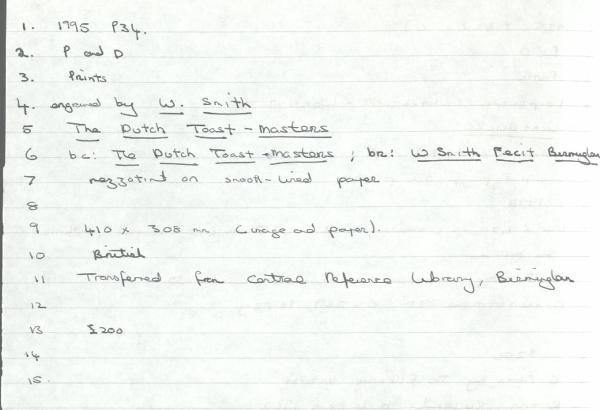 1. 1795 P34.
2. P and D
3. Prints
4. engraved by W. Smith
5 The Dutch Toast-masters
6 bc: The Dutch Toast-masters; br: W Smith Fecit Birmingham
7 mezzotint on smooth-lined paper
8
9 410 x 308 mm (image and paper).
10 British
11 Transferred from Central Reference Library, Birmingham
12
13 £200
14
15.